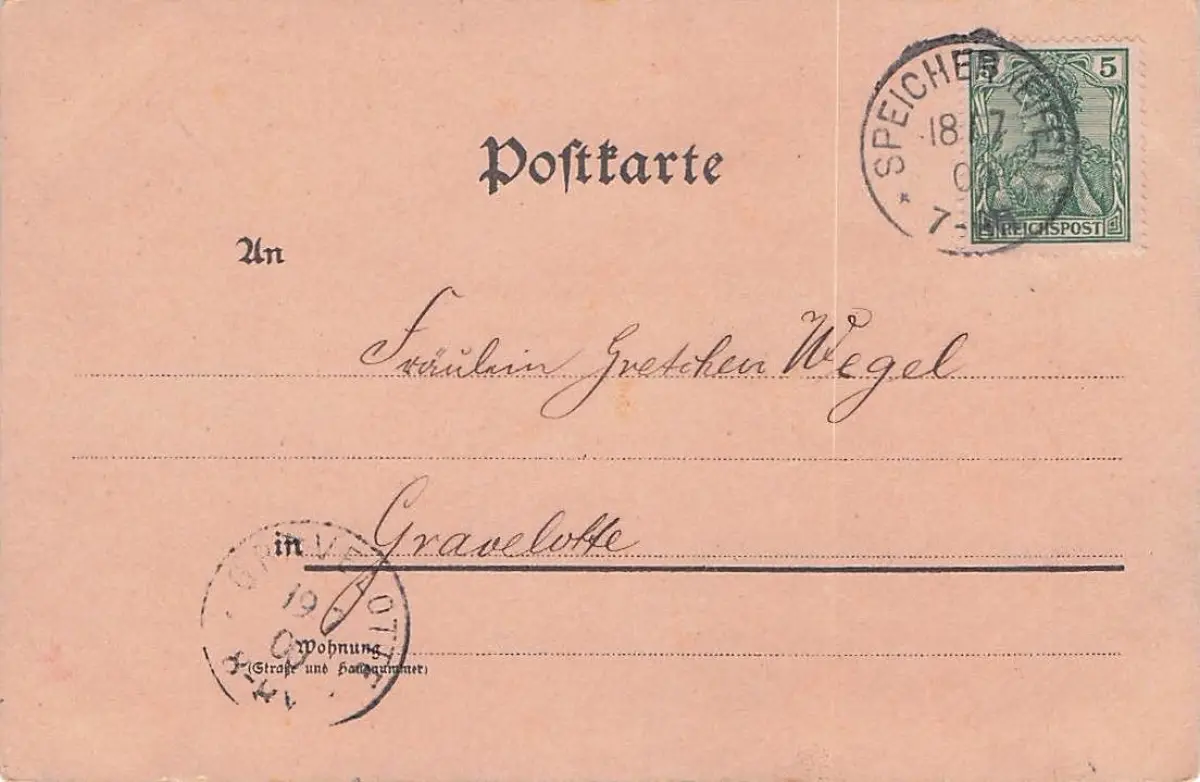 Poſtkarte
SPEICHER (EIFEL)
18 7
7-8
5 5
REICHSPOST
An
Fräulein Gretchen Wegel
in Gravelotte
GRAVELOTTE
19
Wohnung
(Straße und Hausnummer)